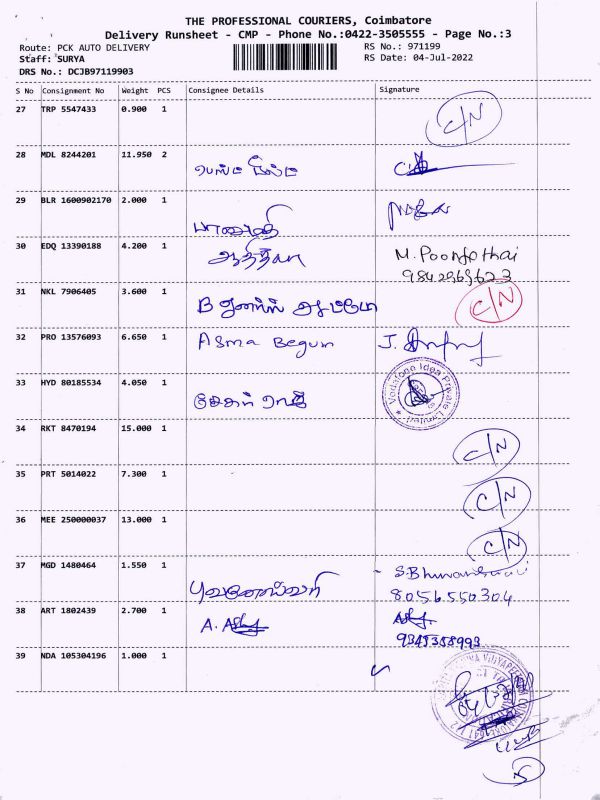 THE PROFESSIONAL COURIERS, Coimbatore
Delivery Runsheet - CMP - Phone No.:0422-3505555 - Page No.:3
Route: PCK AUTO DELIVERY RS No.: 971199
Staff: SURYA RS Date: 04-Jul-2022
DRS No.: DCJB97119903
S No Consignment No Weight PCS Consignee Details Signature
27 TRP 5547433 0.900 1 C/N
28 MDL 8244201 11.950 2
29 BLR 1600902170 2.000 1
30 EDQ 13390188 4.200 1 M. Poongothai
31 NKL 7906405 3.600 1 C/N
32 PRO 13576093 6.650 1 Asma Begum
33 HYD 80185534 4.050 1 Vodafone Idea Private Limited
34 RKT 8470194 15.000 1 C/N
35 PRT 5014022 7.300 1 C/N
36 MEE 250000037 13.000 1 C/N
37 MGD 1480464 1.550 1 புவனேஸ்வரி S.Bhuvaneswari
8056550304
38 ART 1802439 2.700 1
9345358993
39 NDA 105304196 1.000 1